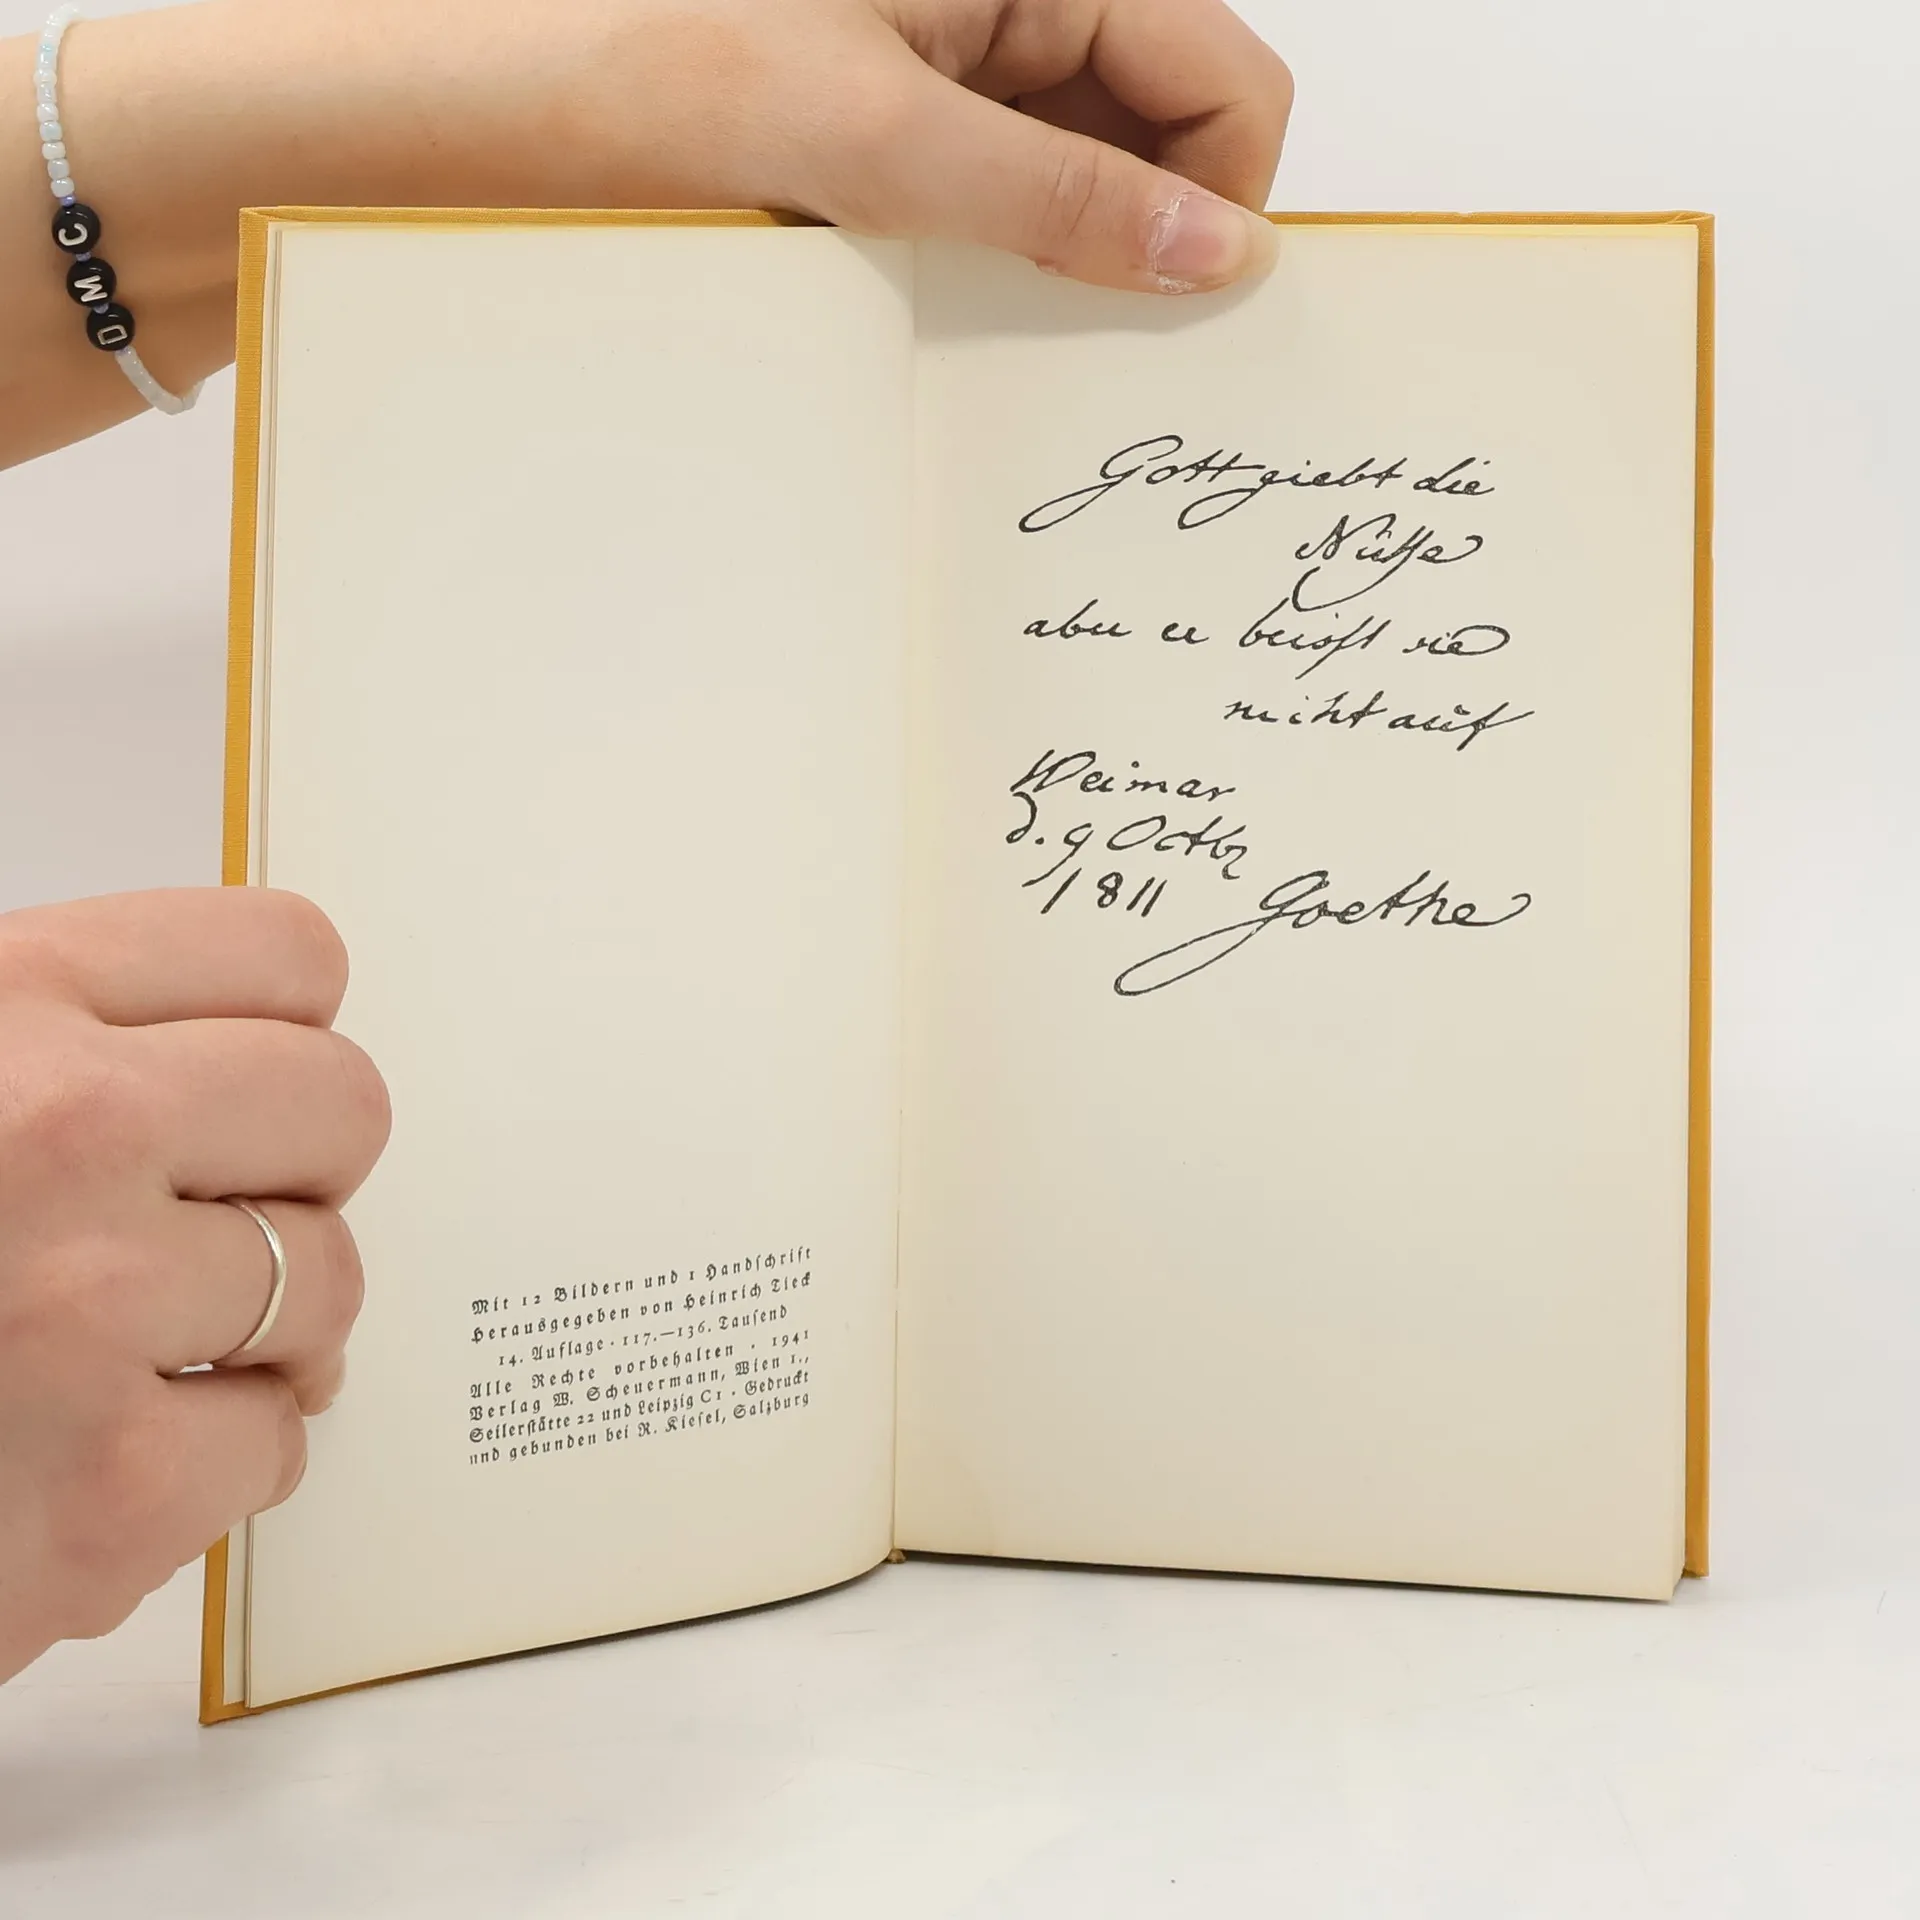 CMD
Mit 12 Bildern und 1 Handschrift
Herausgegeben von Heinrich Tieck
14. Auflage · 117.—136. Tausend
Alle Rechte vorbehalten · 1941
Verlag W. Scheuermann, Wien I.,
Seilerstätte 22 und Leipzig C1 · Gedruckt
und gebunden bei R. Kiesel, Salzburg
Gott giebt die
Nüsse
aber er beisst sie
nicht auf
Weimar
d. 9 Octbr
1811
Goethe